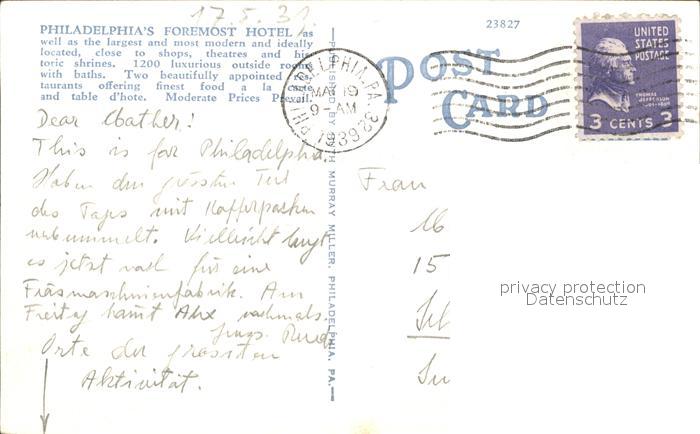 17.5.39
PHILADELPHIA'S FOREMOST HOTEL as
well as the largest and most modern and ideally
located, close to shops, theatres and his-
toric shrines. 1200 luxurious outside rooms
with baths. Two beautifully appointed
taurants offering finest food a la
and table d'hote. Moderate Prices Prevail.
Dear Mother!
This is for Philadelphia.
Haben den grössten Teil
des Tages mit Kofferpacken
verbummelt. Vielleicht langt
es jetzt noch für eine
Fräsmaschinenfabrik. Am
Freitag kommt Alex nochmals.
Rud
Orte der grössten
Aktivität.
PUBLISHED BY MURRAY MILLER, PHILADELPHIA, PA.
23827
POST
CARD
PHILADELPHIA, PA.
MAY 19
9-AM
1939
UNITED
STATES
POSTAGE
THOMAS
JEFFERSON
3 CENTS 3
Frau
15
privacy protection
Datenschutz